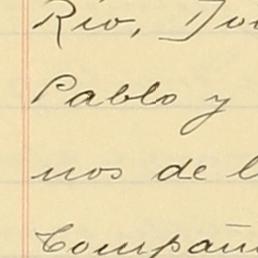 Río, Do
Pablo y
nos de l
Compañ